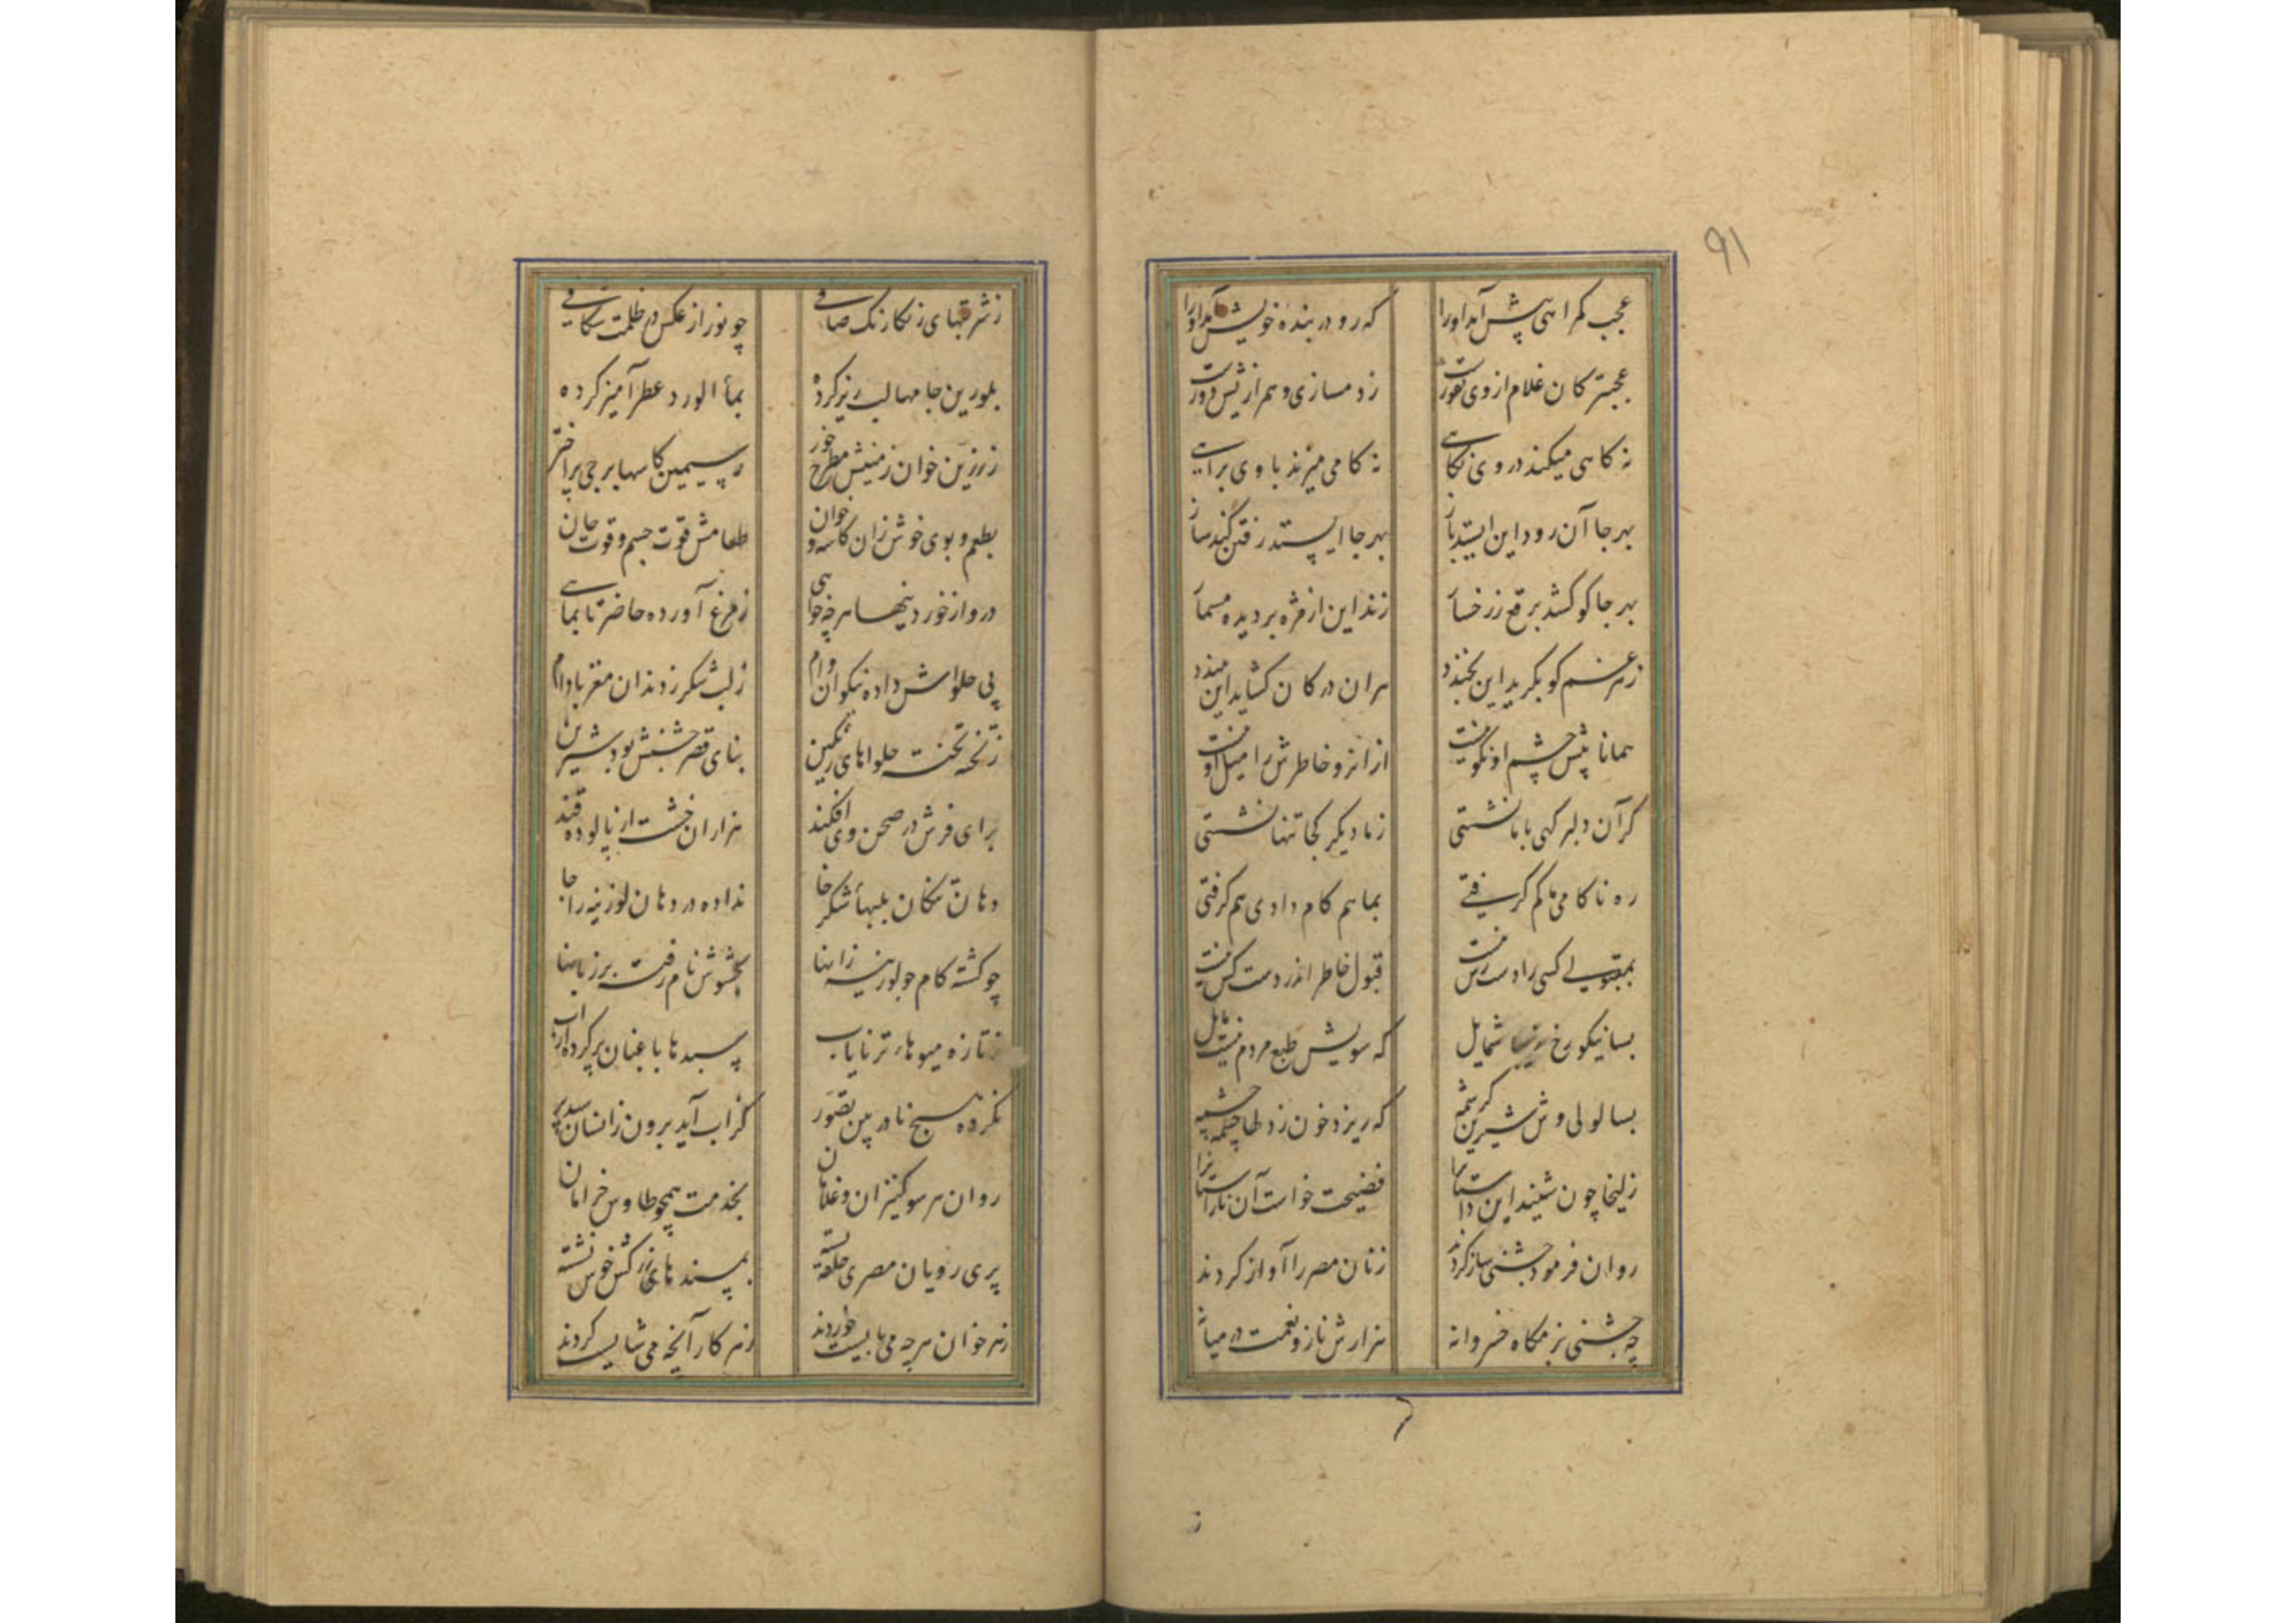 ۹۱
عجب گمراهی پیش آمد او را که رو در بنده خویش آمد او را
عجبتر کان غلام از وی نفورست ز دمسازی و همرازیش دورست
نه گاهی میکند در وی نگاهی نه گامی میزند با وی براهی
بهر جا آن رود این ایستد باز بهر جا ایستد رفتن کند ساز
بهر جا کو کشد برقع ز رخسار زند این از مژه بر دیده مسمار
ز هر غم کو بگرید این بخندد هران در کان گشاید این ببندد
همانا پیش چشم او نکو نیست ازانرو خاطرش را میل او نیست
گر آن دلبر گهی با ما نشستی ز ما دیگر کجا تنها نشستی
ره ناکامی ما کم گرفتی بما هم کام دادی هم گرفتی
بمقبولی کسی را دسترس نیست قبول خاطر اندر دست کس نیست
بسا نیکو رخ شمایل که سویش طبع مردم نیست مایل
بسا لولی وش شیرین کرشمه که ریزد خون ز دلها چشمه چشمه
زلیخا چون شنید این داستانرا فضیحت خواست آن ناراستانرا
روان فرمود جشنی ساز کردند زنان مصر را آواز کردند
چه جشنی بزمگاه خسروانه هزارش ناز و نعمت در میانه
ز
ز شربتهای رنگارنگ صافی چو نور از عکس در ظلمت شکافی
بلورین جامها لبریز کرده بماء الورد عطر آمیز کرده
ز زرین خوان زمینش مطرح خور ز سیمین کاسها برجی پر اختر
بطعم و بوی خوش زان کاسه و خوان طعامش قوت جسم و قوت جان
درو از خوردنیها هر چه خواهی ز مرغ آورده حاضر تا بماهی
پی حلواش داده نیکوان وام ز لب شکر ز دندان مغز بادام
ز تخته تخته حلواهای رنگین بنای قصر جشنش بود شیرین
برای فرش در صحن وی افکند هزاران خشت از پالوده قند
دهان تنگان بلبهاء شکر خا نداده در دهان لوزینه را جا
چو گشته کام جو لوزینه زانها بگوشش نام رفته بر زبانها
ز تازه میوهاء تر نایاب سبدها باغبان پر کرده از آب
نکرده هیچ نادر بین تصور کز آب آید برون زانسان سبد پر
روان هر سو کنیزان و غلامان بخدمت همچو طاوس خرامان
پری رویان مصری حلقه بسته بمسندهای زرکش خوش نشسته
ز هر خوان هر چه می بایست خوردند ز هر کار آنچه می شایست کردند